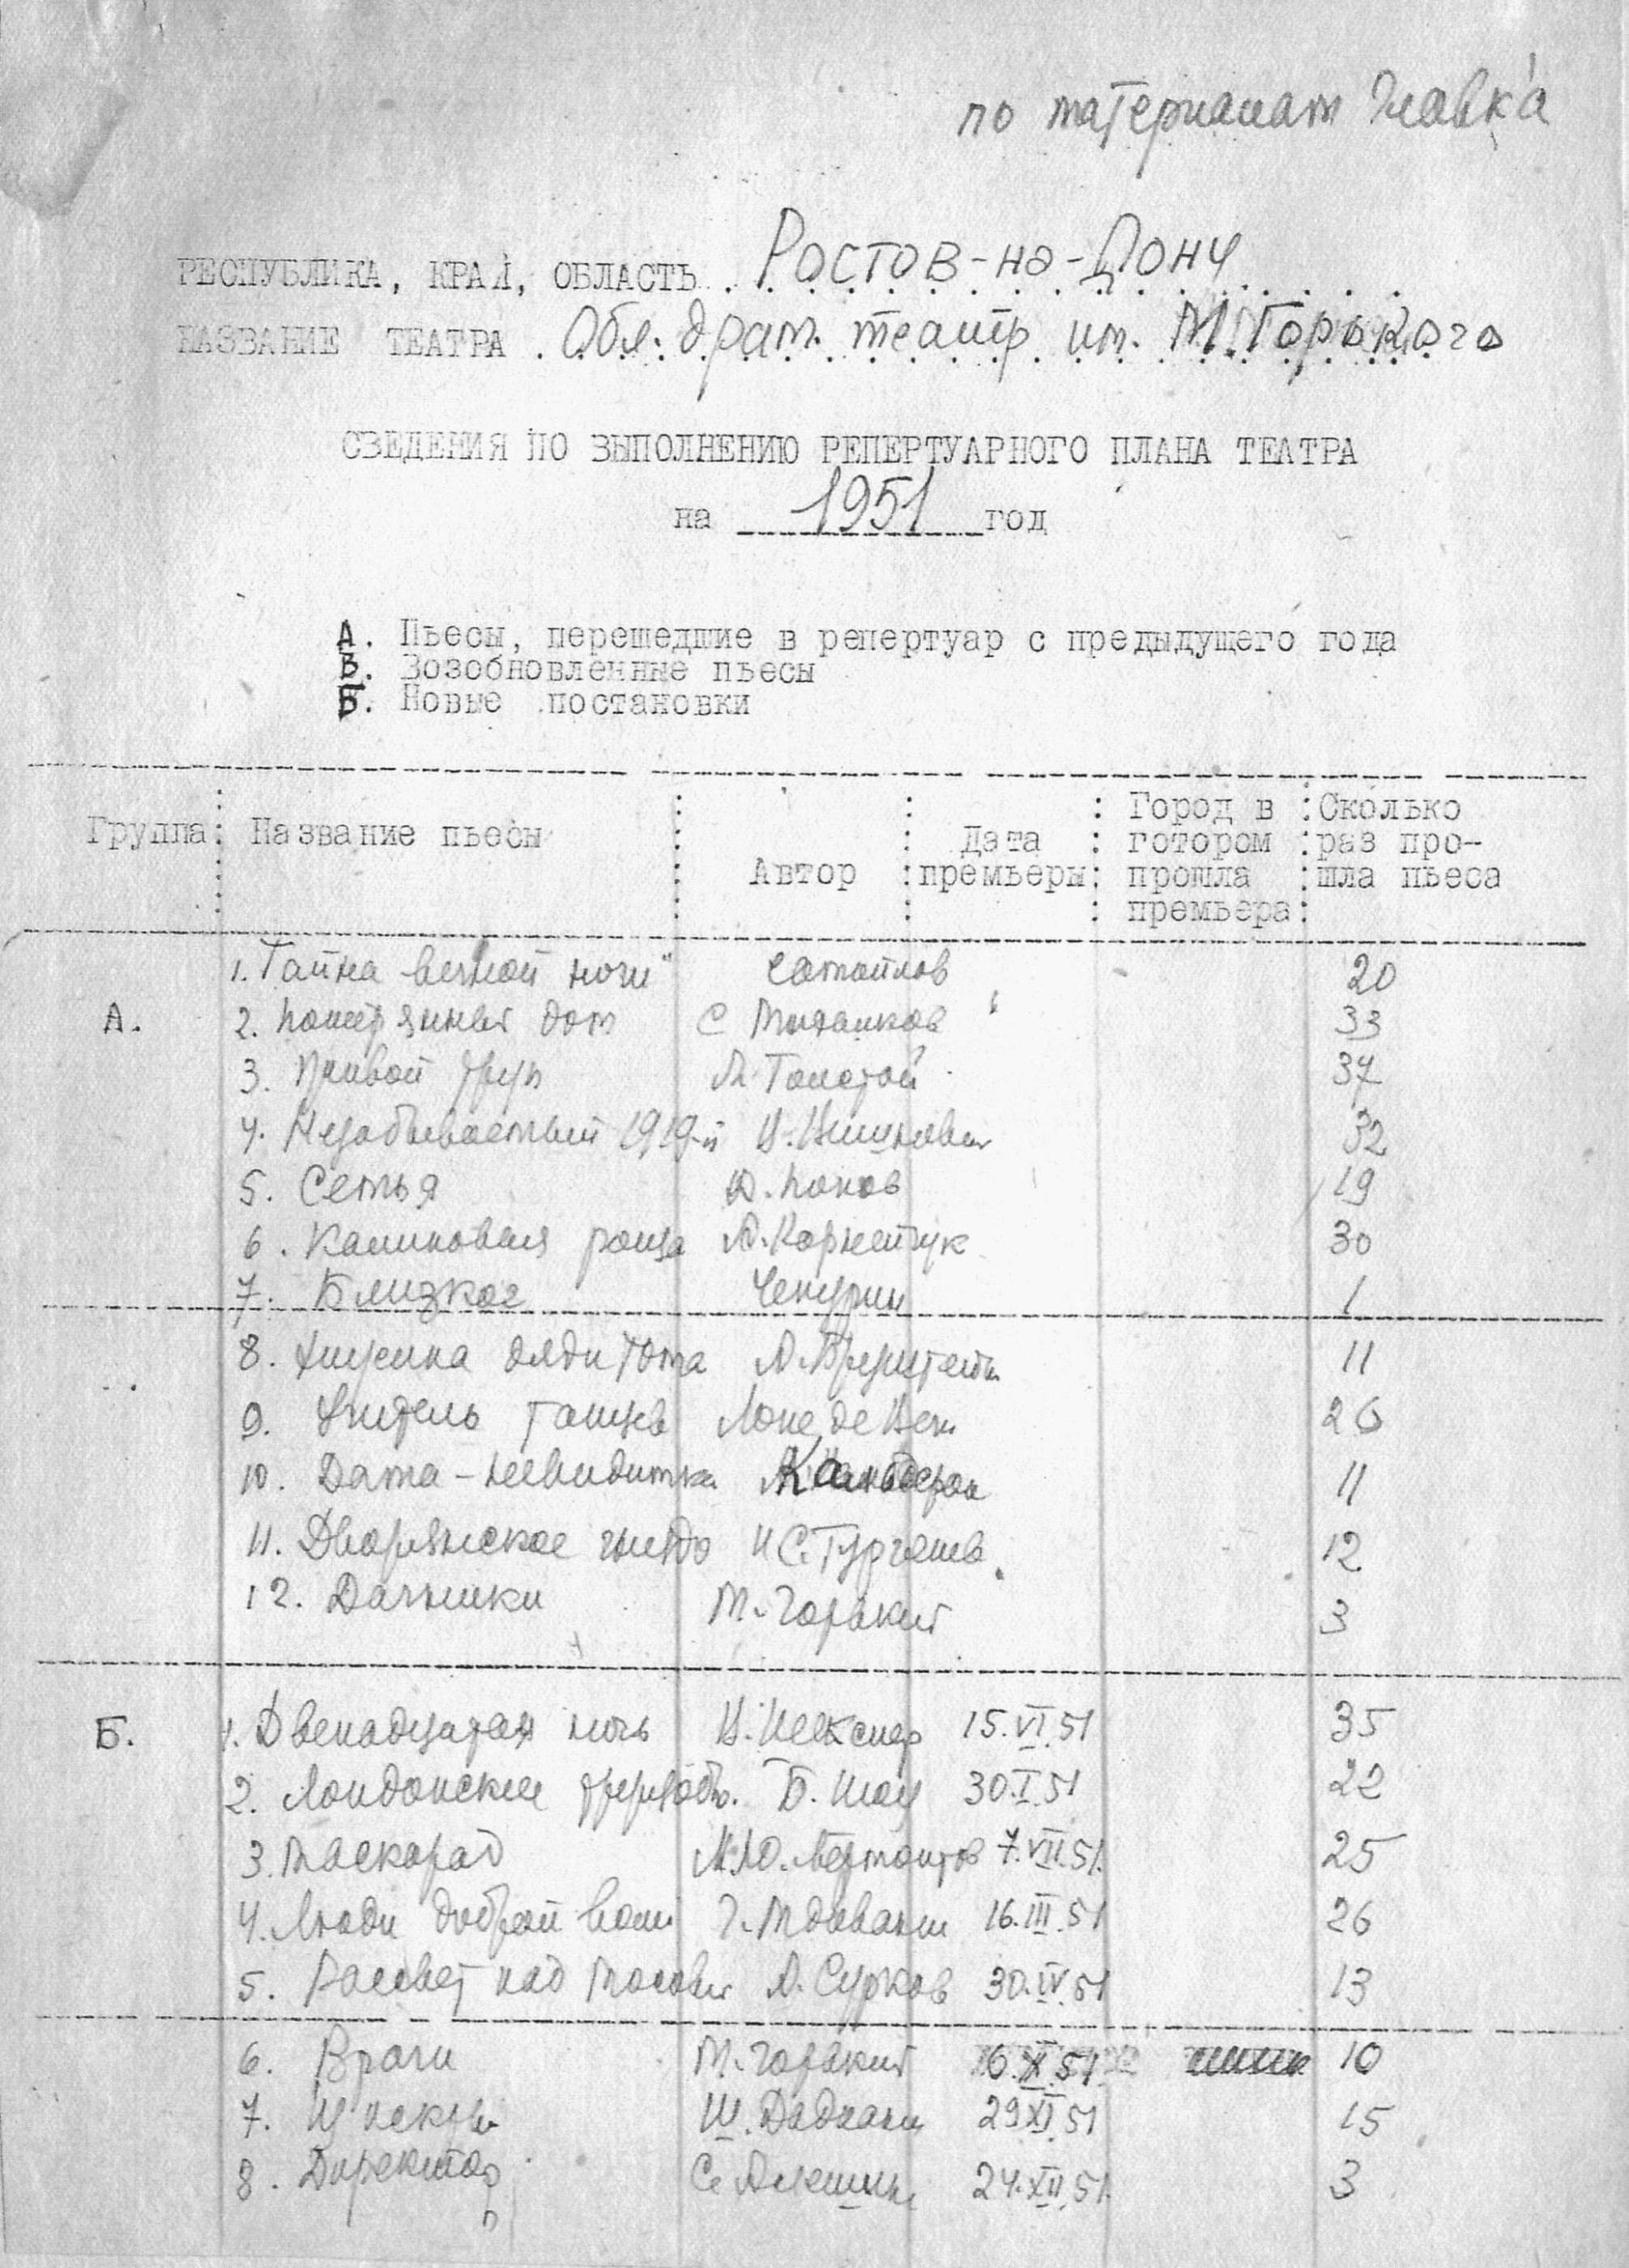 по материалам Главк'а
РЕСПУБЛИКА, КРАЙ, ОБЛАСТЬ . Ростов-на-Дону
НАЗВАНИЕ ТЕАТРА . Обл. драм. театр им. М. Горького
СВЕДЕНИЯ ПО ВЫПОЛНЕНИЮ РЕПЕРТУАРНОГО ПЛАНА ТЕАТРА
на 1951 год
А. Пьесы, перешедшие в репертуар с предыдущего года
В. Возобновленные пьесы
Б. Новые постановки
Группа: Название пьесы : Автор : Дата премьеры : Город в готором прошла премьера : Сколько раз про- шла пьеса
1. Тайна вечной ночи" Самойлов 20
А. 2. Потерянный дом С Михалков 33
3. Живой труп Л. Толстой 37
4. Незабываемый 1919-й В. Вишневский 32
5. Семья И. Попов 19
6. Калиновая роща А. Корнейчук 30
7. Близкое Чепурин 1
8. Хижина дяди Тома А. Бруштейн 11
9. Учитель танцев Лопе де Вега 26
10. Дама-невидимка Кальдерон 11
11. Дворянское гнездо И С. Тургенев 12
12. Дачники М. Горький 3
Б. 1. Двенадцатая ночь В. Шекспир 15.VI.51 35
2. Лондонские трущобы. Б. Шоу 30.I.51 22
3. Маскарад М.Ю. Лермонтов 7.VII.51. 25
4. Люди доброй воли Г. Мдивани 16.III.51 26
5. Рассвет над Москвой А. Суров 30.IV.51 13
6. Враги М. Горький 51 10
7. Из искры Ш. Дадиани 29.XI.51 15
8. Директор С. Алешин 24.XII.51. 3